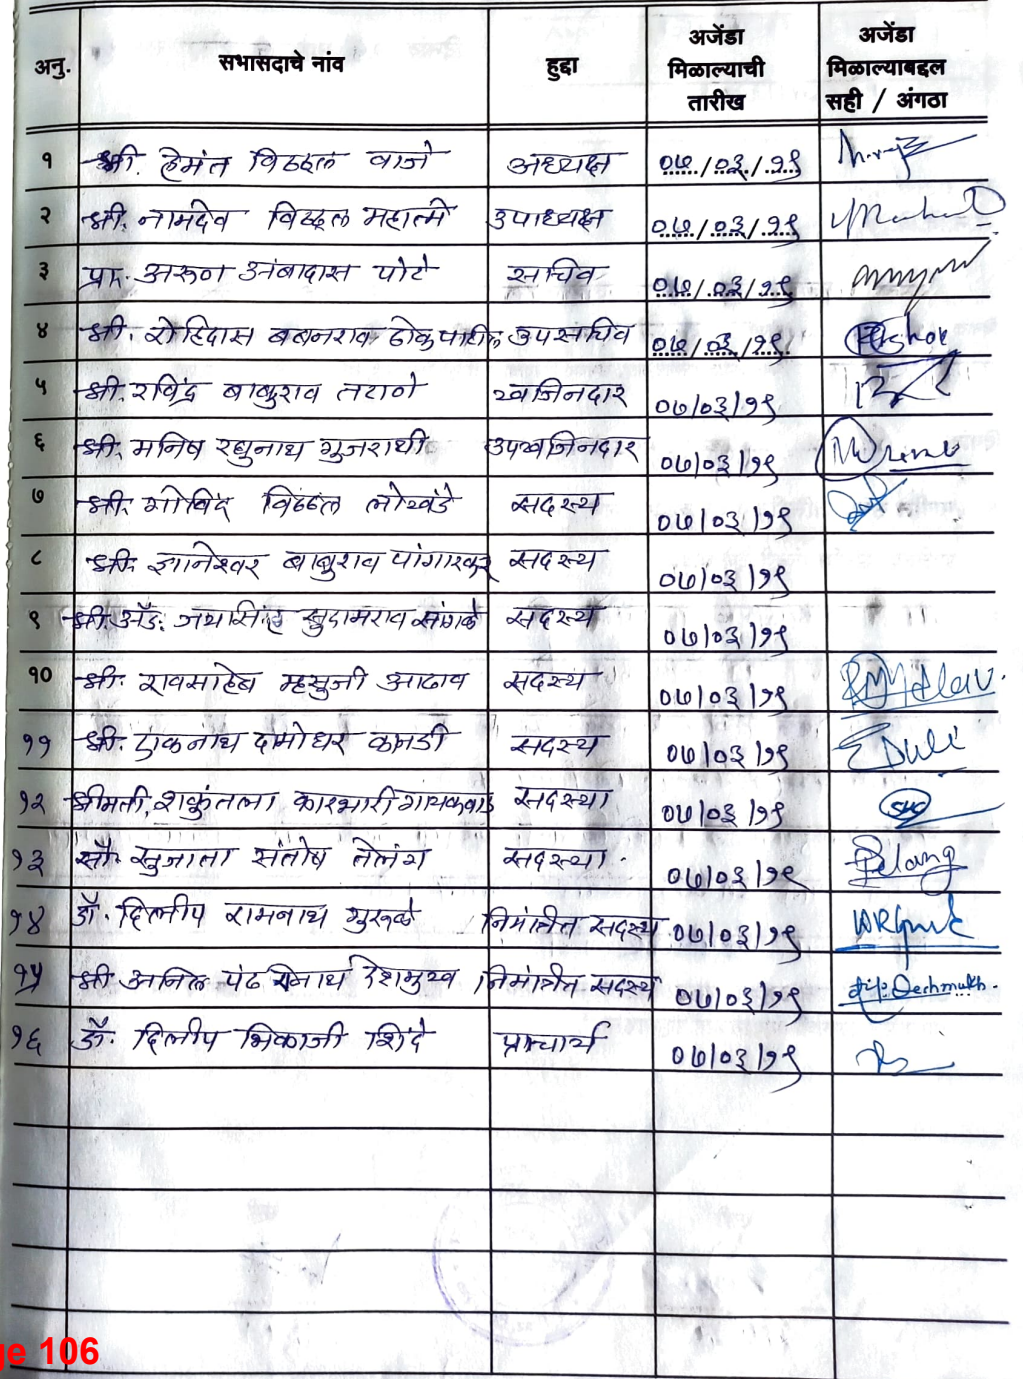 अनु. सभासदाचे नांव हुद्दा अजेंडा मिळाल्याची तारीख अजेंडा मिळाल्याबद्दल सही / अंगठा
१ श्री. हेमंत विठ्ठल वाजे अध्यक्ष ०७/०३/२१
२ श्री. नामदेव विठ्ठल महात्मे उपाध्यक्ष ०७/०३/२१
३ प्रा. अरुण अंबादास पोटे सचिव ०७/०३/२१
४ श्री. रोहिदास बबनराव उपसचिव ०७/०३/२१
५ श्री. रविंद्र बाबुराव खजिनदार ०७/०३/२१
६ श्री. मनिष रघुनाथ गुजराथी उपखजिनदार ०७/०३/२१
७ श्री. गोविंद विठ्ठल लोखंडे सदस्य ०७/०३/२१
८ श्री. ज्ञानेश्वर बाबुराव पांगारकर सदस्य ०७/०३/२१
९ श्री. अ‍ॅड. जयसिंह सुदामराव सदस्य ०७/०३/२१
१० श्री. रावसाहेब म्हसुजी आढाव सदस्य ०७/०३/२१
११ श्री. एकनाथ दामोधर सदस्य ०७/०३/२१
१२ श्रीमती. शकुंतला कारभारी गायकवाड सदस्या ०७/०३/२१
१३ सौ. सुजाता संतोष तेलंग सदस्या. ०७/०३/२१ Telang
१४ डॉ. दिलीप रामनाथ गुरुळे निमंत्रीत सदस्य ०७/०३/२१
१५ श्री अनिल पंढरीनाथ देशमुख निमंत्रीत सदस्य ०७/०३/२१ Deshmukh.
१६ डॉ. दिलीप भिकाजी शिंदे प्राचार्य ०७/०३/२१
ge 106